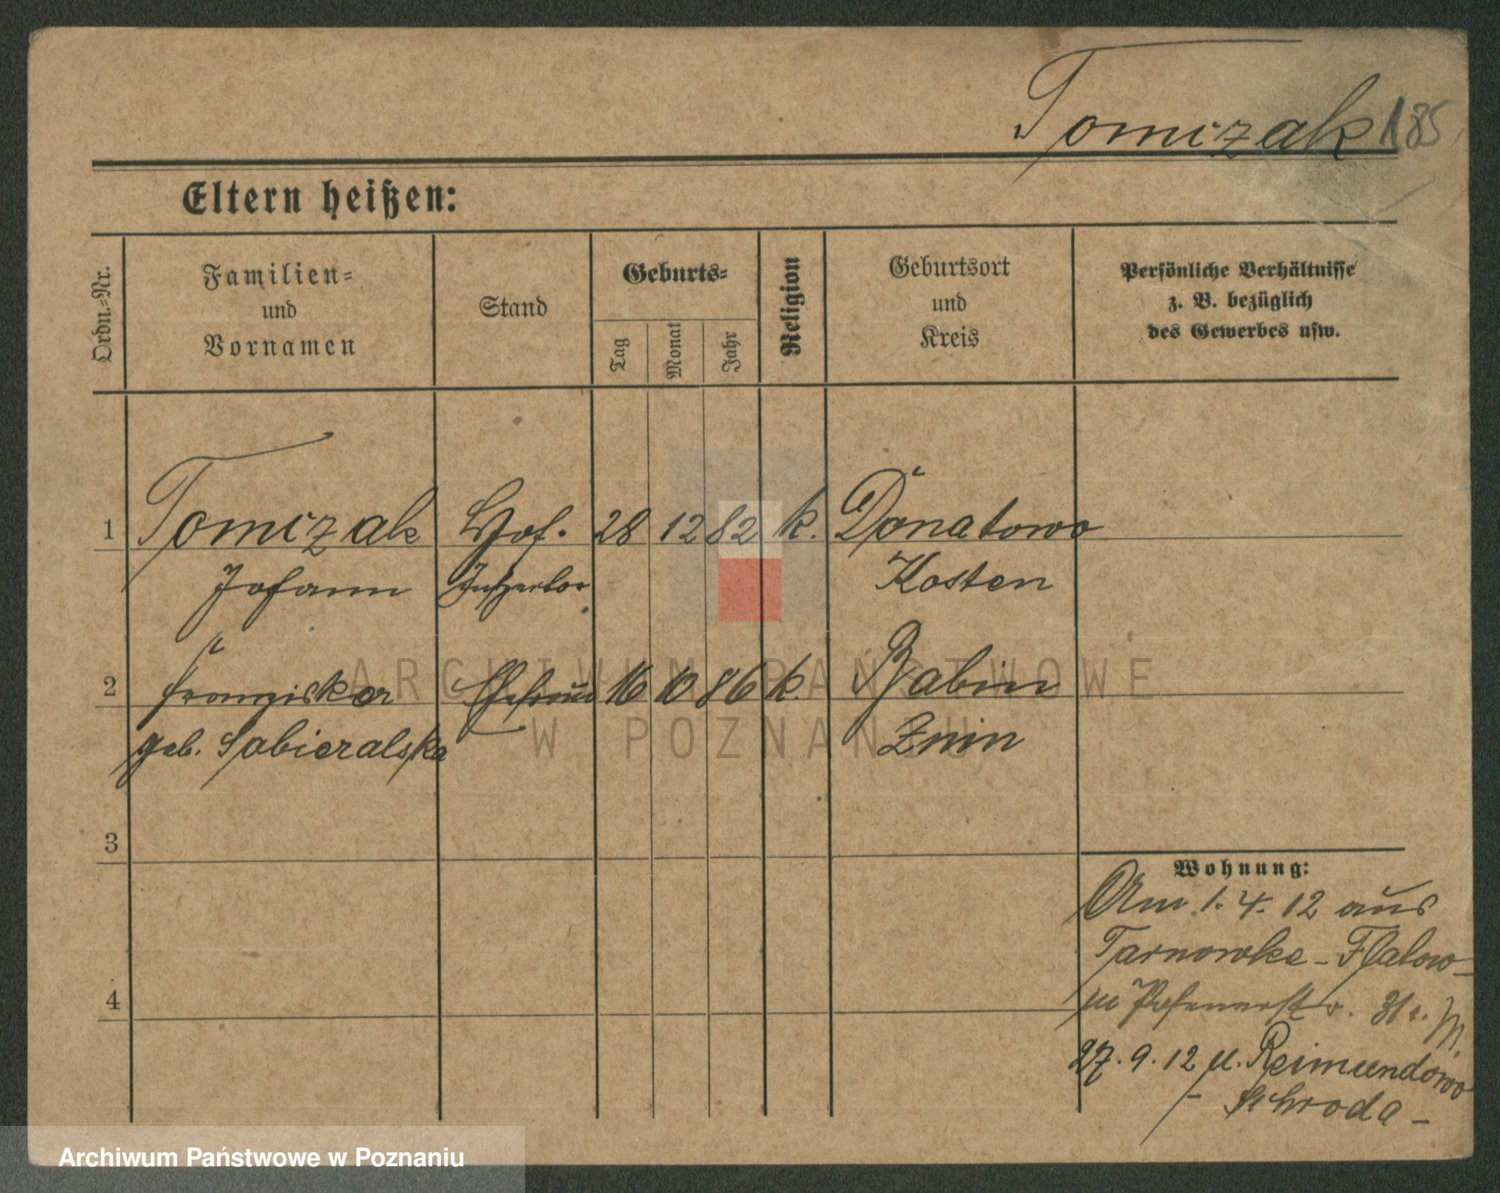 Tomczak 185
Eltern heißen:
Ordn.-Nr.
Familien- und Vornamen
Stand
Geburts-
Tag
Monat
Jahr
Religion
Geburtsort und Kreis
Persönliche Verhältnisse
z. B. bezüglich
des Gewerbes usw.
1 Tomczak Hof. 28 12 82 k. Donatowo
Johann Kosten
2 Franziska Ehefrau 16 10 86 k. Babin
geb. Sobieralska Znin
3
Wohnung:
Am 1. 4. 12 aus
Tarnowke - Flatow -
4
in Posenerstr. 31
27. 9. 12 n. Reimundowo
- Schroda -
ARCHIWUM PAŃSTWOWE
W POZNANIU
Archiwum Państwowe w Poznaniu